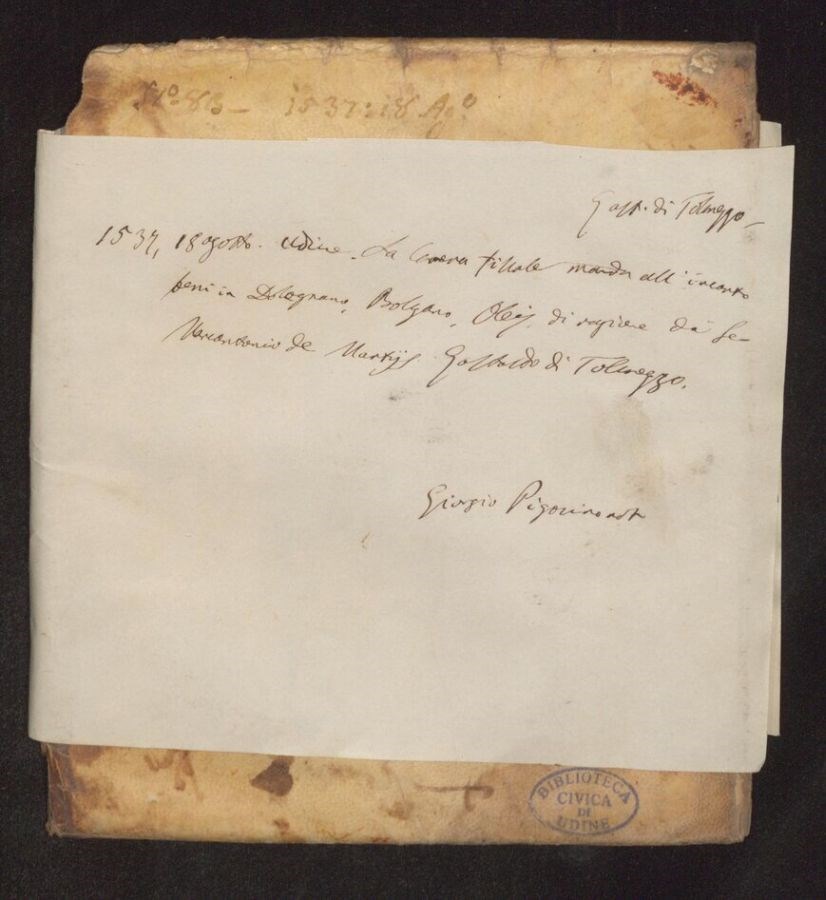 N.º 83 — 1537: 18 Ag.º
Gast. di Tolmezzo —
1537, 18 agosto. Udine. La Camera fiscale manda all'incanto
beni in Dolegnano, Bolzano, Oleis, di ragione da Se-
Marcantonio de Martijs. Gastaldo di Tolmezzo.
Giorgio Pigozino not.
BIBLIOTECA
CIVICA
DI
UDINE